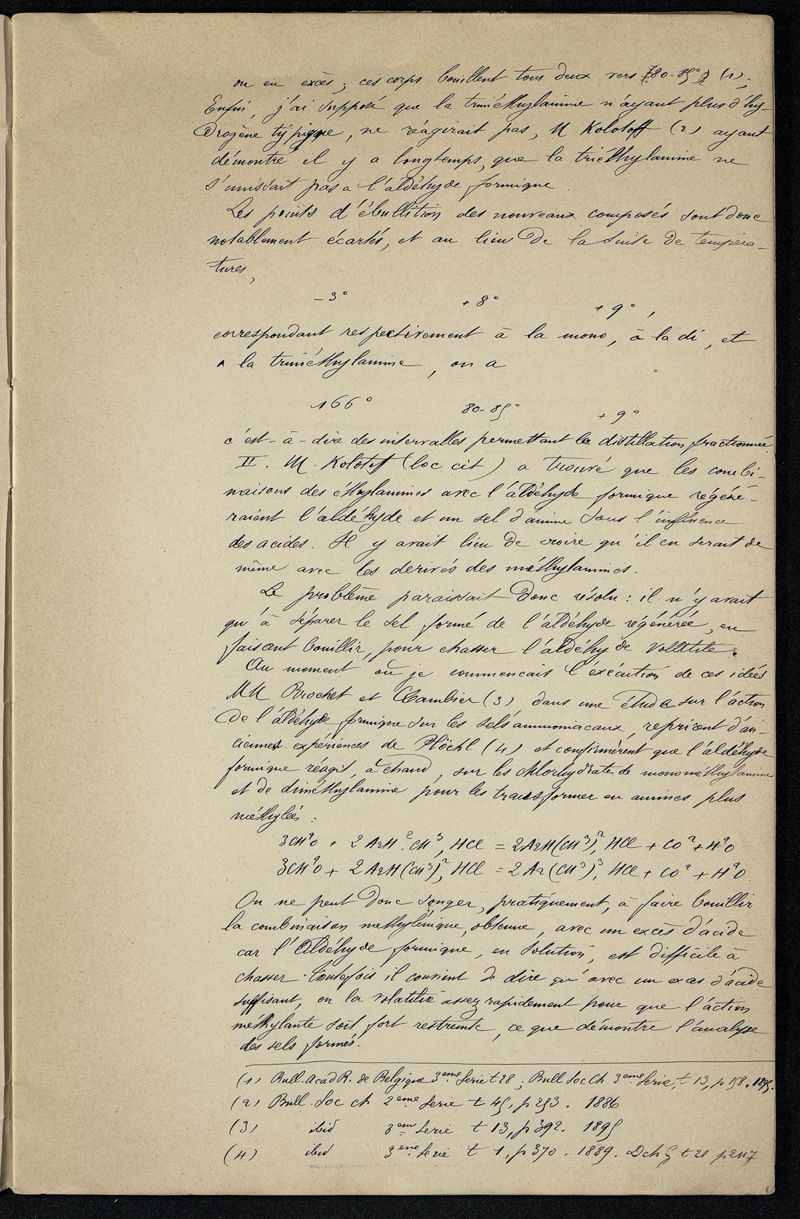 ou en excès; ces corps bouillent tous deux vers (80-85°) (1).
Enfin, j'ai supposé que la triméthylamine n'ayant plus d'hy-
drogène typique, ne réagirait pas, M Kolotoff (2) ayant
démontré il y a longtemps, que la triéthylamine ne
s'unissait pas a l'aldéhyde formique
Les points d'ébullition des nouveaux composés sont donc
notablement écartés, et au lieu de la suite de tempéra-
tures,
-3° +8° +9°,
correspondant respectivement à la mono, à la di, et
a la triméthylamine, on a
166° 80-85° +9°
c'est-à-dire des intervalles permettant la distillation fractionnée.
II. M. Kolotoff (loc cit) a trouvé que les combi-
naisons des éthylamines avec l'aldéhyde formique régéné-
raient l'aldéhyde et un sel d'amine sous l'influence
des acides. Il y avait lieu de croire qu'il en serait de
même avec les dérivés des méthylamines.
Le problème paraissait donc résolu: il n'y avait
qu'à séparer le sel formé de l'aldéhyde régénérée, en
faisant bouillir, pour chasser l'aldéhyde volatile.
Au moment où je commencais l'exécution de ces idées
MM Brochet et Cambier (3), dans une étude sur l'action
de l'aldéhyde formique sur les sels ammoniacaux, reprirent d'an-
ciennes expériences de Plöchl (4) et confirmèrent que l'aldéhyde
formique réagit, à chaud, sur les chlorhydrates de monométhylamine
et de diméthylamine pour les transformer en amines plus
méthylées:
3CH²O + 2AzH².CH³, HCl = 2AzH(CH³)², HCl + CO² + H²O
3CH²O + 2AzH(CH³)², HCl = 2Az(CH³)³, HCl + CO² + H²O
On ne peut donc songer, pratiquement, à faire bouillir
la combinaison méthylénique, obtenue, avec un excès d'acide
car l'aldéhyde formique, en solution, est difficile à
chasser. Toutefois il convient de dire qu'avec un exces d'acide
suffisant, on la volatilise assez rapidement pour que l'action
méthylante soit fort restreinte, ce que démontre l'analyse
des sels formés.
(1) Bull. Acad R. de Belgique 3eme Serie t 28; Bull Soc Ch 3eme Serie, t 13, p 158. 1895.
(2) Bull. Soc ch 2eme Serie t 45, p 253. 1886
(3) ibid 3eme Serie t 13, p 392. 1895
(4) ibid 3eme Serie t 1, p 370. 1889. t 21 p 2117